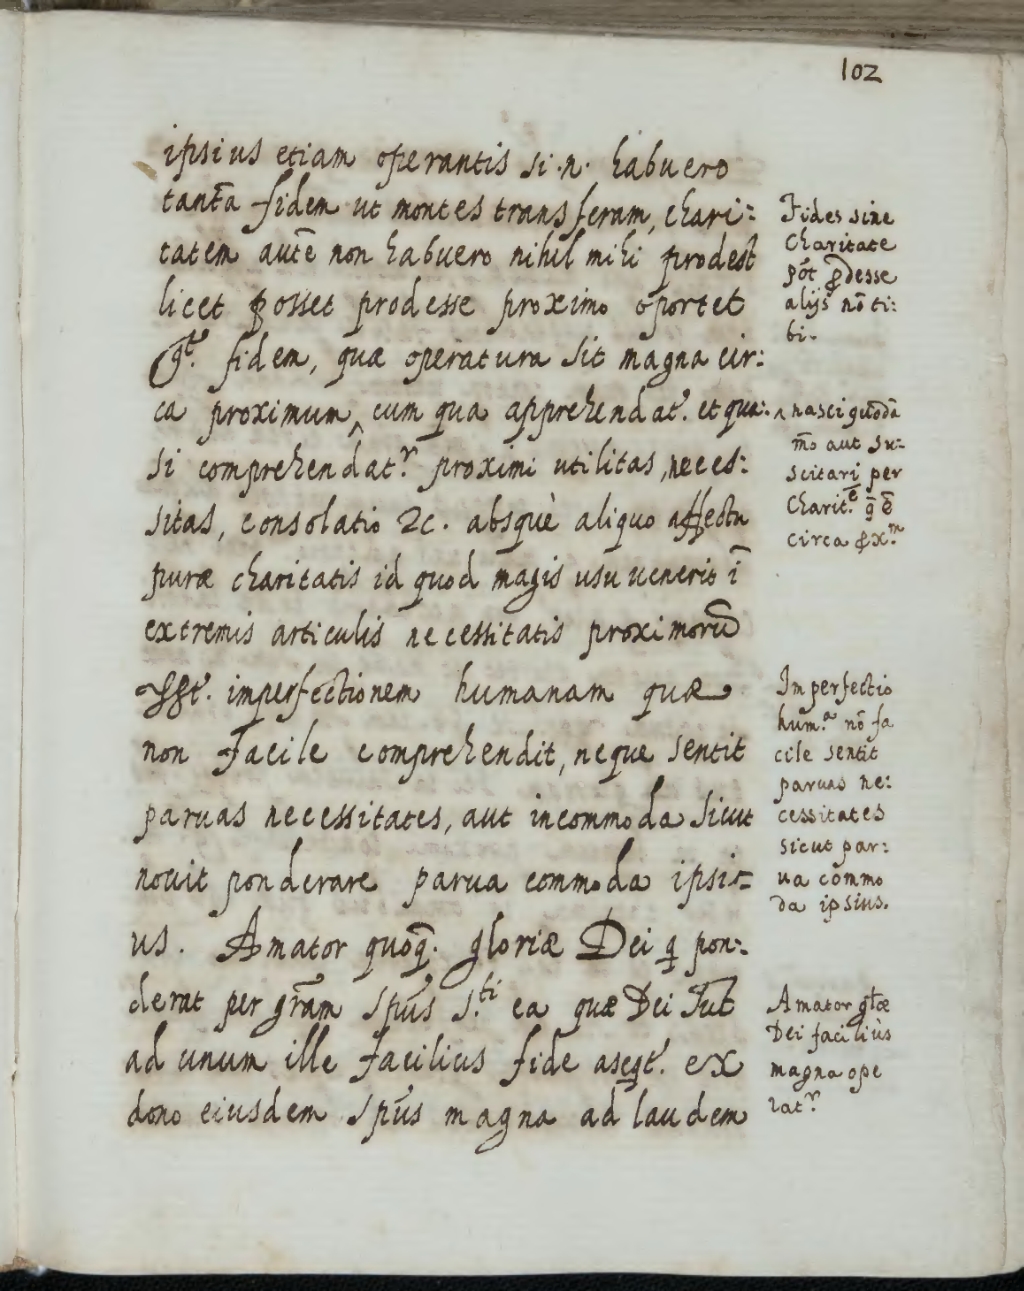 102
ipsius etiam operantis si .n. habuero
tanta̅ fidem ut montes transferam, chari:
tatem aute̅ non habuero nihil mihi prodest
licet posset prodesse proximo oportet
fidem, quæ operatura sit magna cir:
ca proximum ^ cum qua apprehendat.ʳ et qua:
si comprehendat.ʳ proximi utilitas, neces:
sitas, consolatio &c. absquè aliquo affectu
puræ charitatis id quod magis usu uenerit i̅
extremis articulis necessitatis proximoru̅
imperfectionem humanam quæ
non facile comprehendit, neque sentit
paruas necessitates, aut incommoda sicut
nouit ponderare parua commoda ipsi:
us. Amator quoq̅. gloriæ Dei q̅ pon:
derat per gr̅am Sp̅us S.ᵗⁱ ea quæ Dei su̅t
ad unum ille facilius fide aseqt.ʳ ex
dono eiusdem Sp̅us magna ad laudem
Fides sine
Charitate
po̅t ꝓdesse
alijs no̅ ti:
bi.
^ nasci quoda̅
m̅o aut su:
scitari per
Charit.ᵉ q̅ e̅
circa ꝓx.ᵐ
Imperfectio
hum.ᵃ no̅ fa
cile sentit
paruas ne:
cessitates
sicut par:
ua co̅mo
da ipsius.
Amator gl̅æ
Dei faciliùs
magna ope
rat.ʳ